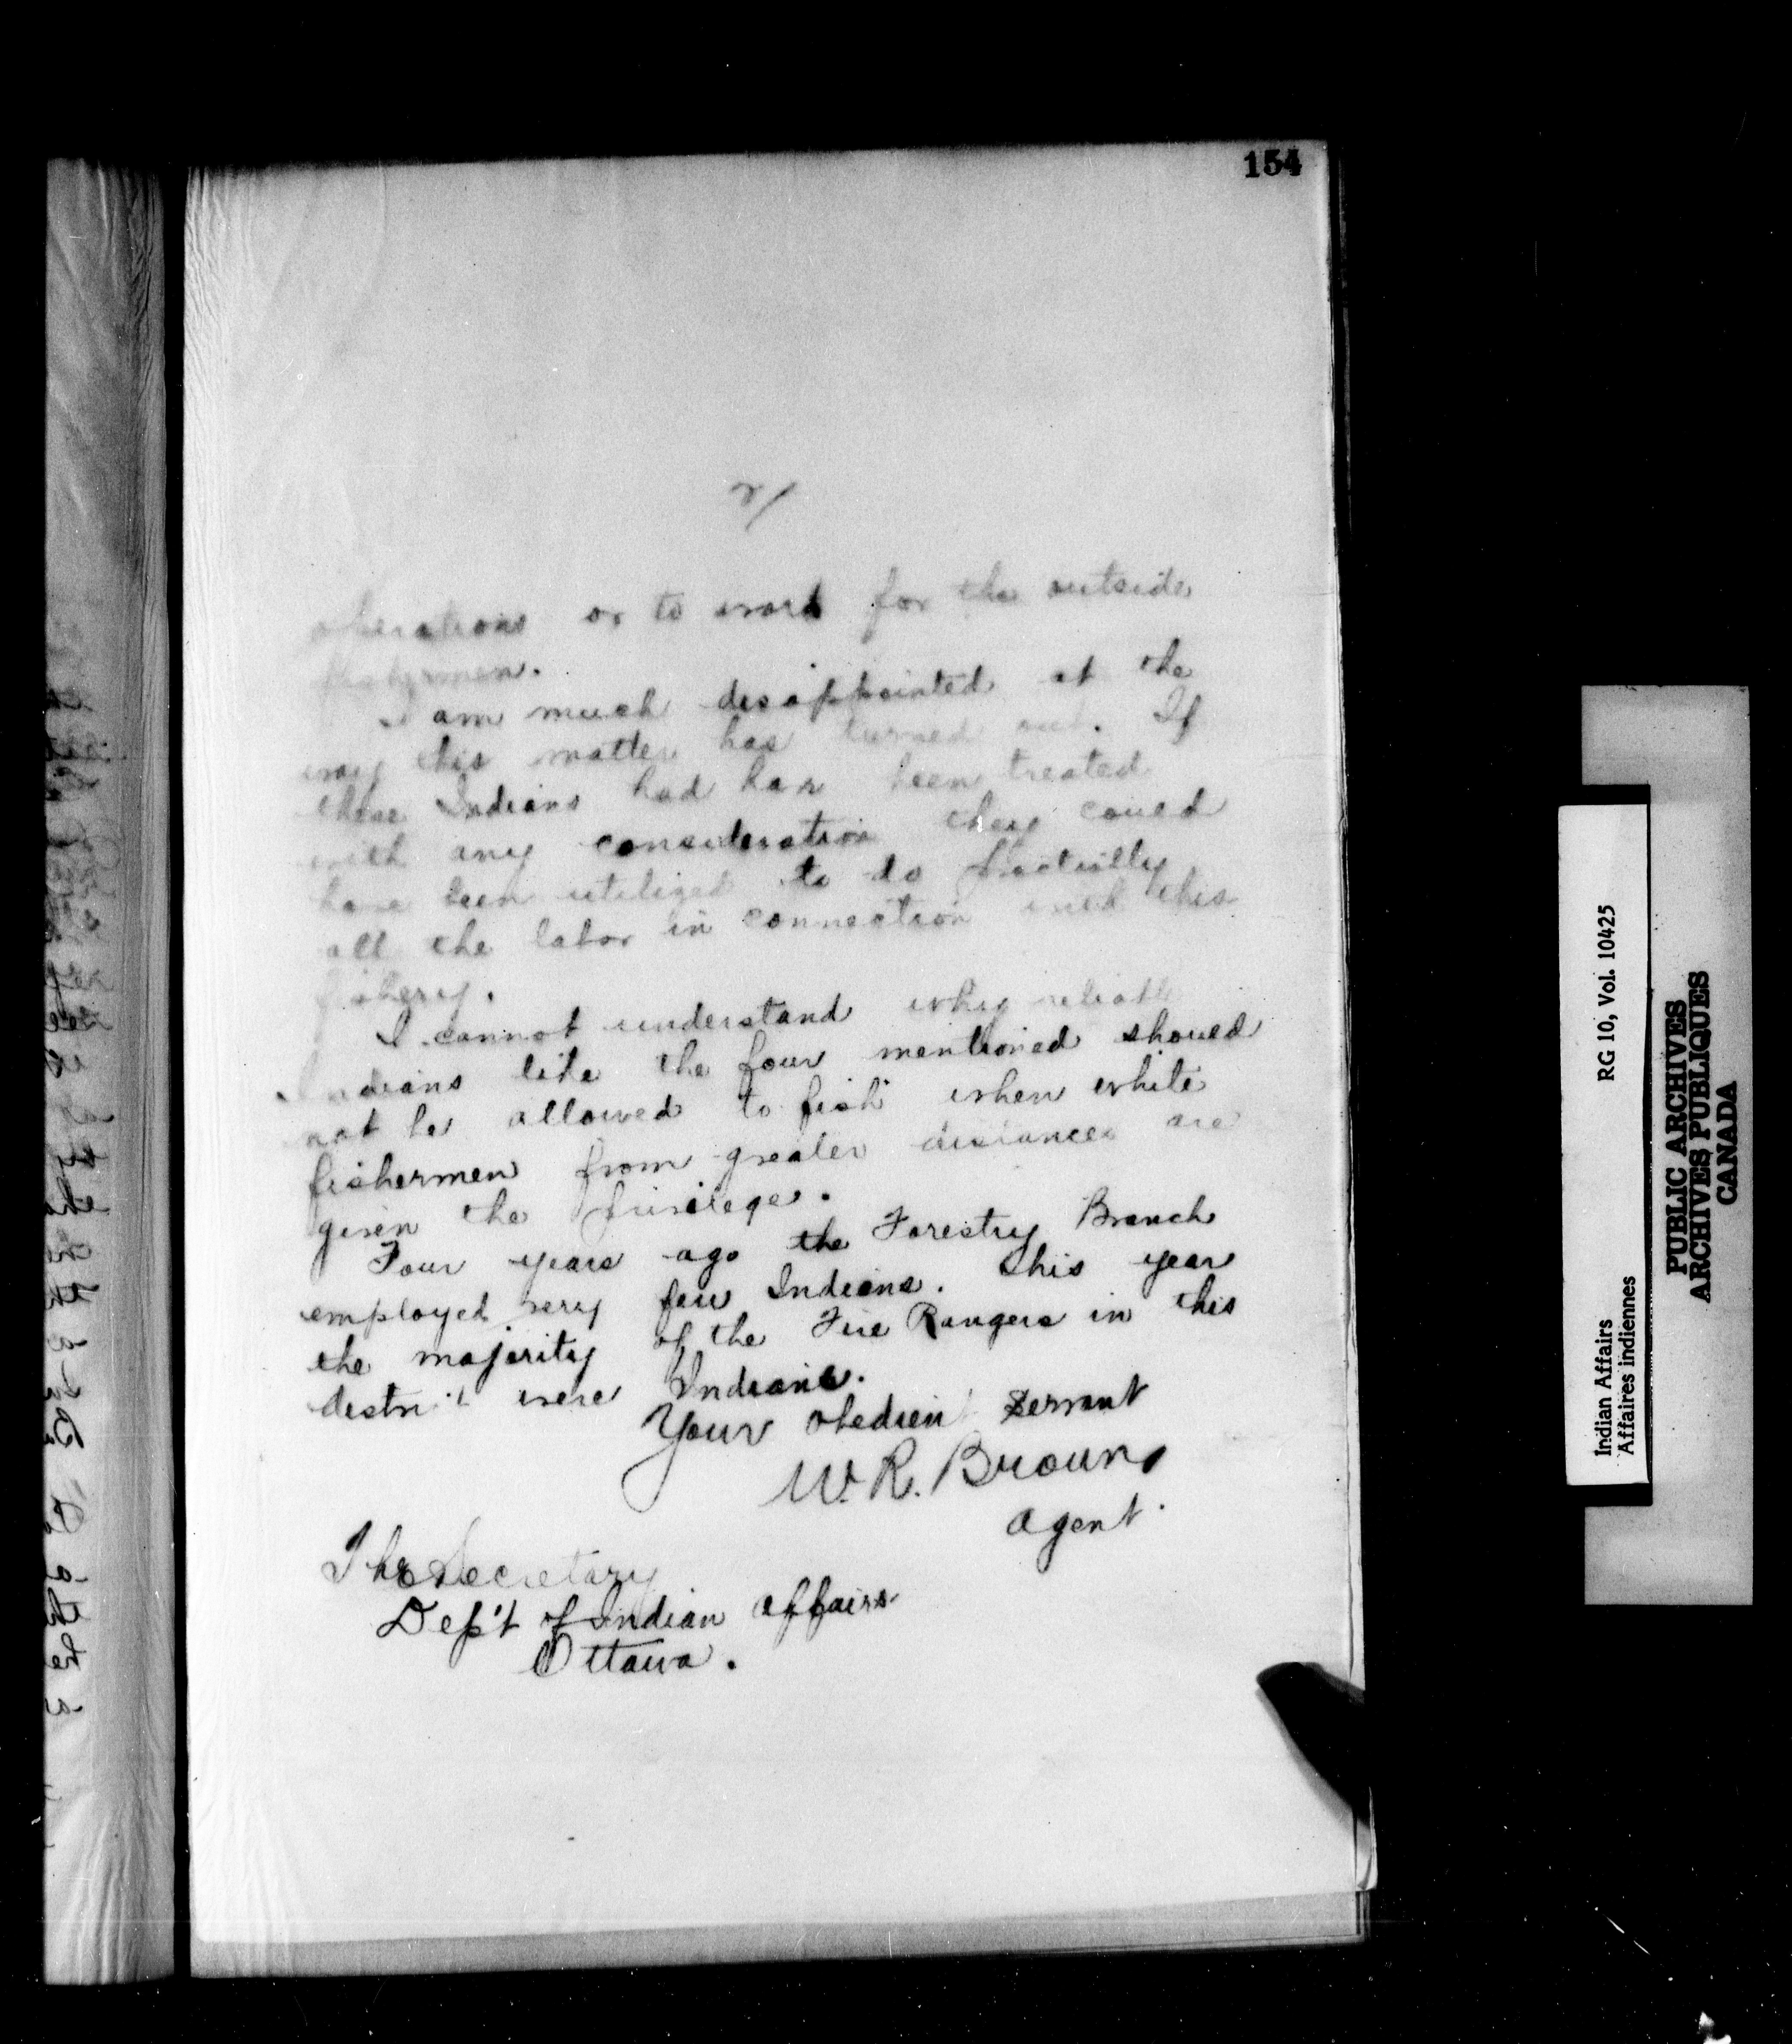 154
2/
operations or to work for the outside
fishermen.
I am much disappointed at the
way this matter has turned out. If
these Indians had been treated
with any consideration they could
have been utilized to do practically
all the labor in connection with this
fishery.
I cannot understand why reliable
Indians like the four mentioned should
not be allowed to fish when white
fishermen from greater distances are
given the privilege.
Four years ago the Forestry Branch
employed very few Indians. This year
the majority of the Fire Rangers in this
district were Indians.
Your obedient servant
W. R. Brown
Agent.
The Secretary
Dep't of Indian Affairs
Ottawa.
Indian Affairs RG 10, Vol. 10425
Affaires indiennes
PUBLIC ARCHIVES
ARCHIVES PUBLIQUES
CANADA